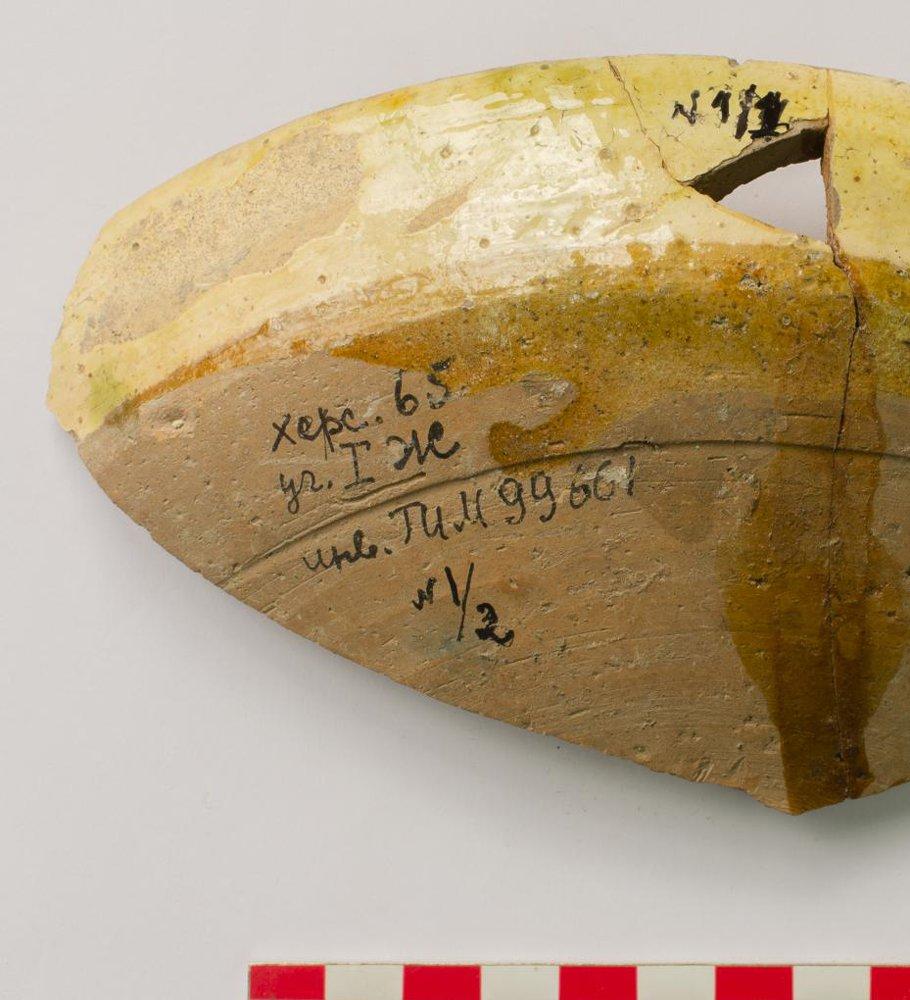 N 1/2
херс. 65
уг. I Ж
инв. ГИМ 99661
N 1/2